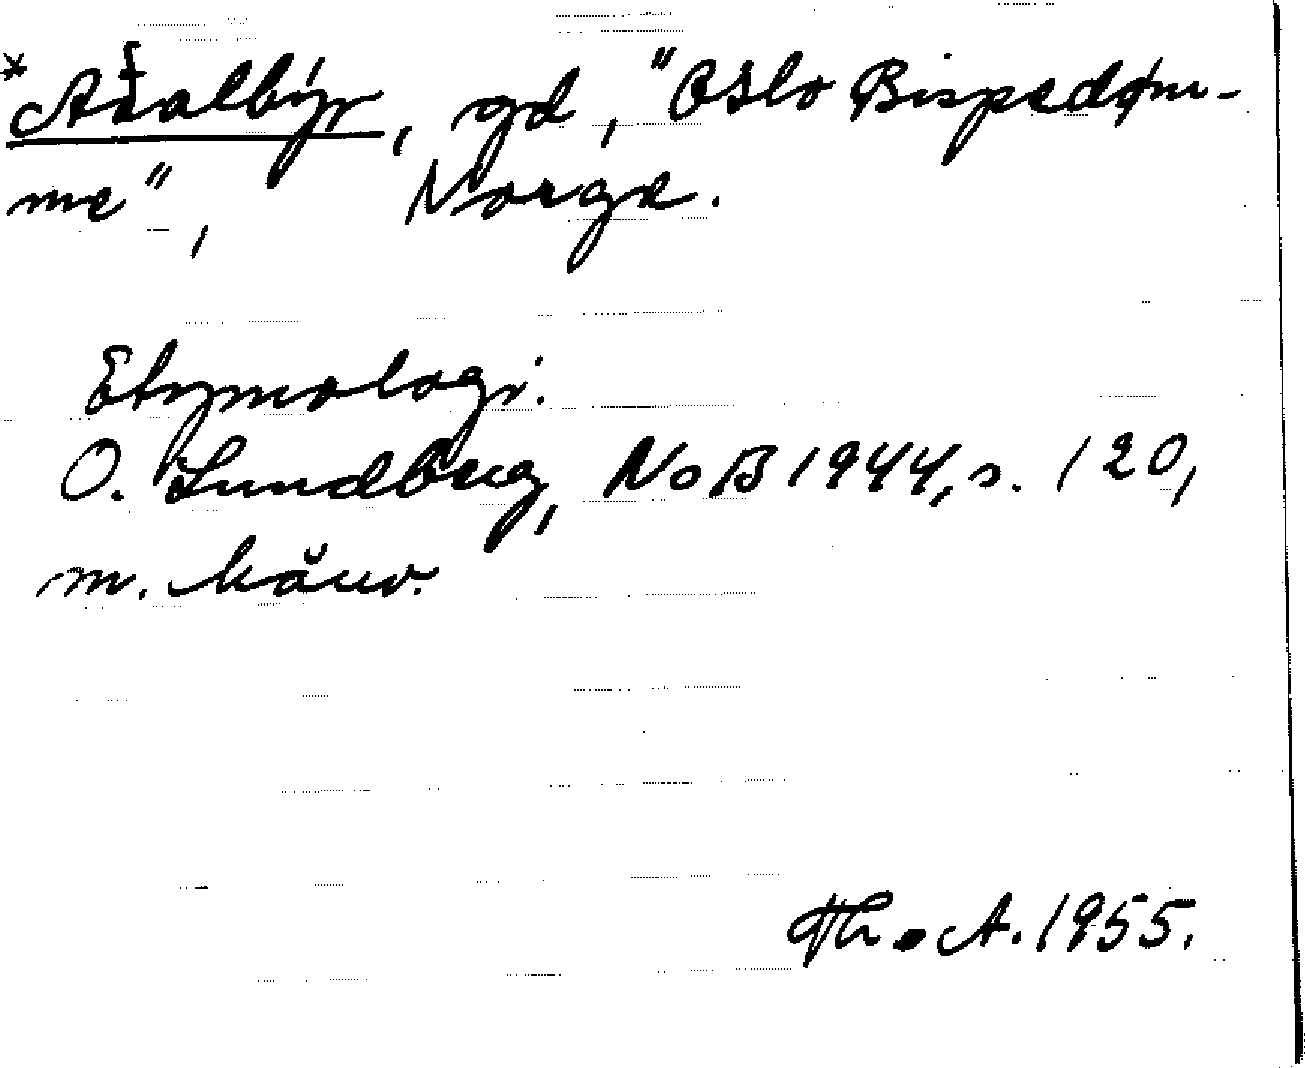 , gd, "Oslo Bispedøm-
me", Norge.
Etymologi:
O. Lundberg, NoB 1944, s. 120,
m. hänv.
Th. A. 1955.